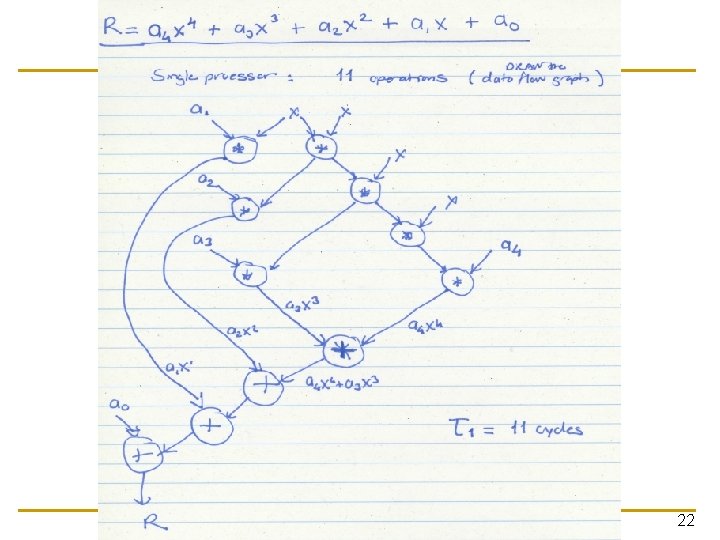 R = a₄x⁴ + a₃x³ + a₂x² + a₁x + a₀
Single processor : 11 operations ( DRAW the data flow graph )
a₁ x x
* *
x
a₂ *
* x
a₃ * a₄
* *
a₃x³
a₂x² a₄x⁴
*
a₁x¹ + a₄x⁴+a₃x³
a₀
+ T₁ = 11 cycles
+
R
22